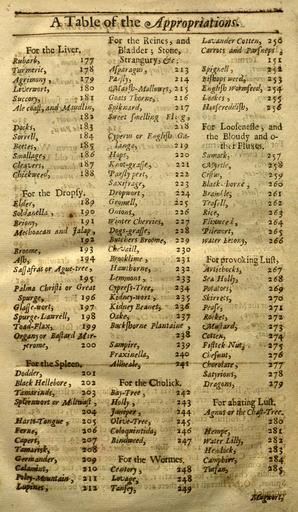 A Table of the Appropriations.
For the Liver,
Rubarb, 177
Turmeric, 178
Agrimony, 179
Liverwort, 180
Succory, 181
Ale coast, and Maudlin,
182
Docks, 183
Sorrel, 184
Beetes, 185
Smallage, 186
Cleavers, 187
Chickweed, 188
For the Dropsy,
Elder, 189
Soldanella, 190
Briony, 191
Mechoacan and Jalap,
192
Broome, 193
Ash, 194
Sassafras or Ague-tree,
195
Palma Christi or Great
Spurge, 196
Glasse-wort, 197
Spurge-Laurell, 198
Toad-Flax, 199
Organy or Bastard Mar-
jerome, 200
For the Spleen,
Dodder, 201
Black Hellebore, 202
Tamarinds, 203
Spleenwort or Miltwast,
204
Harts-Tongue, 205
Ferne, 206
Capers, 207
Tamarisk, 208
Germander, 209
Calamint, 210
Poley-Mountain, 211
Lupines, 212
For the Reines, and
Bladder; Stone,
Strangury, &c:
Asparagus, 213
Parsly, 214
Marsh-Mallowes, 215
Goats Thorne, 216
Spiknard, 217
Sweet smelling Flag,
218
Cyperus or English Ga-
lange, 219
Hops, 220
Knot-grasse, 221
Parsly pert, 222
Saxifrage, 223
Dropwort, 224
Gromell, 225
Onions, 226
Winter Cherries, 227
Dogs-grasse, 228
Butchers Broome, 229
Chervill, 230
Brooklime, 231
Hawthorne, 232
Lemmons, 233
Cypress-Tree, 234
Kidney-wort, 235
Kidney Beanes, 236
Oake, 237
Buckshorne Plantaine,
238
Sampire, 239
Fraxinella, 240
Alkeale, 241
For the Cholick,
Bay-Tree, 242
Holly, 243
Juniper, 244
Olive-Tree, 245
Coloquintida, 246
Bindweed, 247
For the Wormes,
Centory, 248
Lovage, 248
Tansey, 249
Lavander Cotten, 250
Carrots and Parsneps,
251
Spignell, 252
Bishops weed, 253
English Wormseed, 254
Leekes, 255
Horseradish, 256
For Loosenesse, and
the Bloudy and o-
ther Fluxes.
Sumach, 257
Myrtle, 258
Cistus, 259
Black-thorne, 260
Bramble, 261
Teasels, 262
Rice, 263
Flixweed, 264
Pilewort, 265
Water Betony, 266
For provoking Lust,
Artichocks, 267
Sea Holly, 268
Potatoes, 269
Skirrets, 270
Pease, 271
Rocket, 272
Mustard, 273
Cotten, 274
Fistick Nut, 275
Chesnut, 276
Chocolate, 277
Satyrions, 278
Dragons, 279
For abating Lust,
Agnus or the Chast-Tree.
280
Hempe, 281
Water Lilly, 282
Hemlock, 283
Camphire, 284
Tutsan, 285
Mugwort,